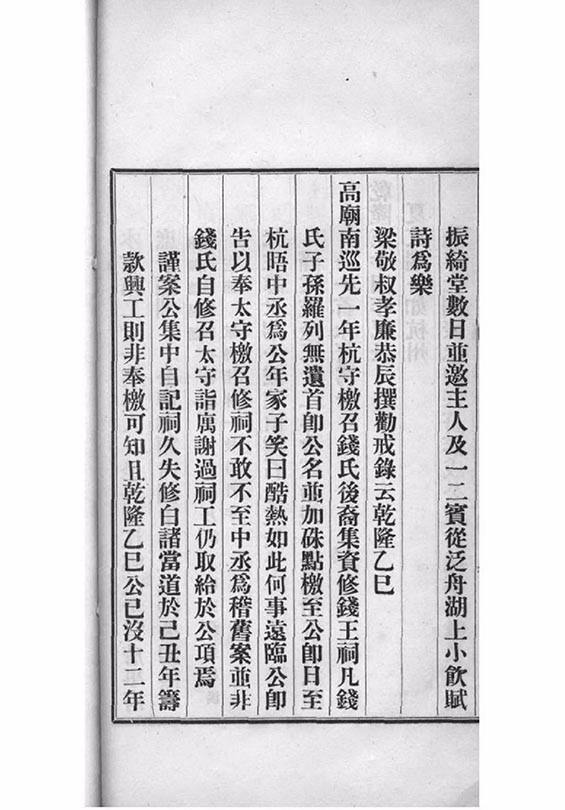 振綺堂數日並邀主人及一二賓從泛舟湖上小飮賦
詩爲樂
梁敬叔孝廉恭辰撰勸戒錄云乾隆乙巳
高廟南巡先一年杭守檄召錢氏後裔集資修錢王祠凡錢
氏子孫羅列無遺首卽公名並加硃點檄至公卽日至
杭晤中丞爲公年家子笑曰酷熱如此何事遠臨公卽
告以奉太守檄召修祠不敢不至中丞爲稽舊案並非
錢氏自修召太守詣厲謝過祠工仍取給於公項焉
謹案公集中自記祠久失修白諸當道於己丑年籌
款興工則非奉檄可知且乾隆乙巳公已沒十二年